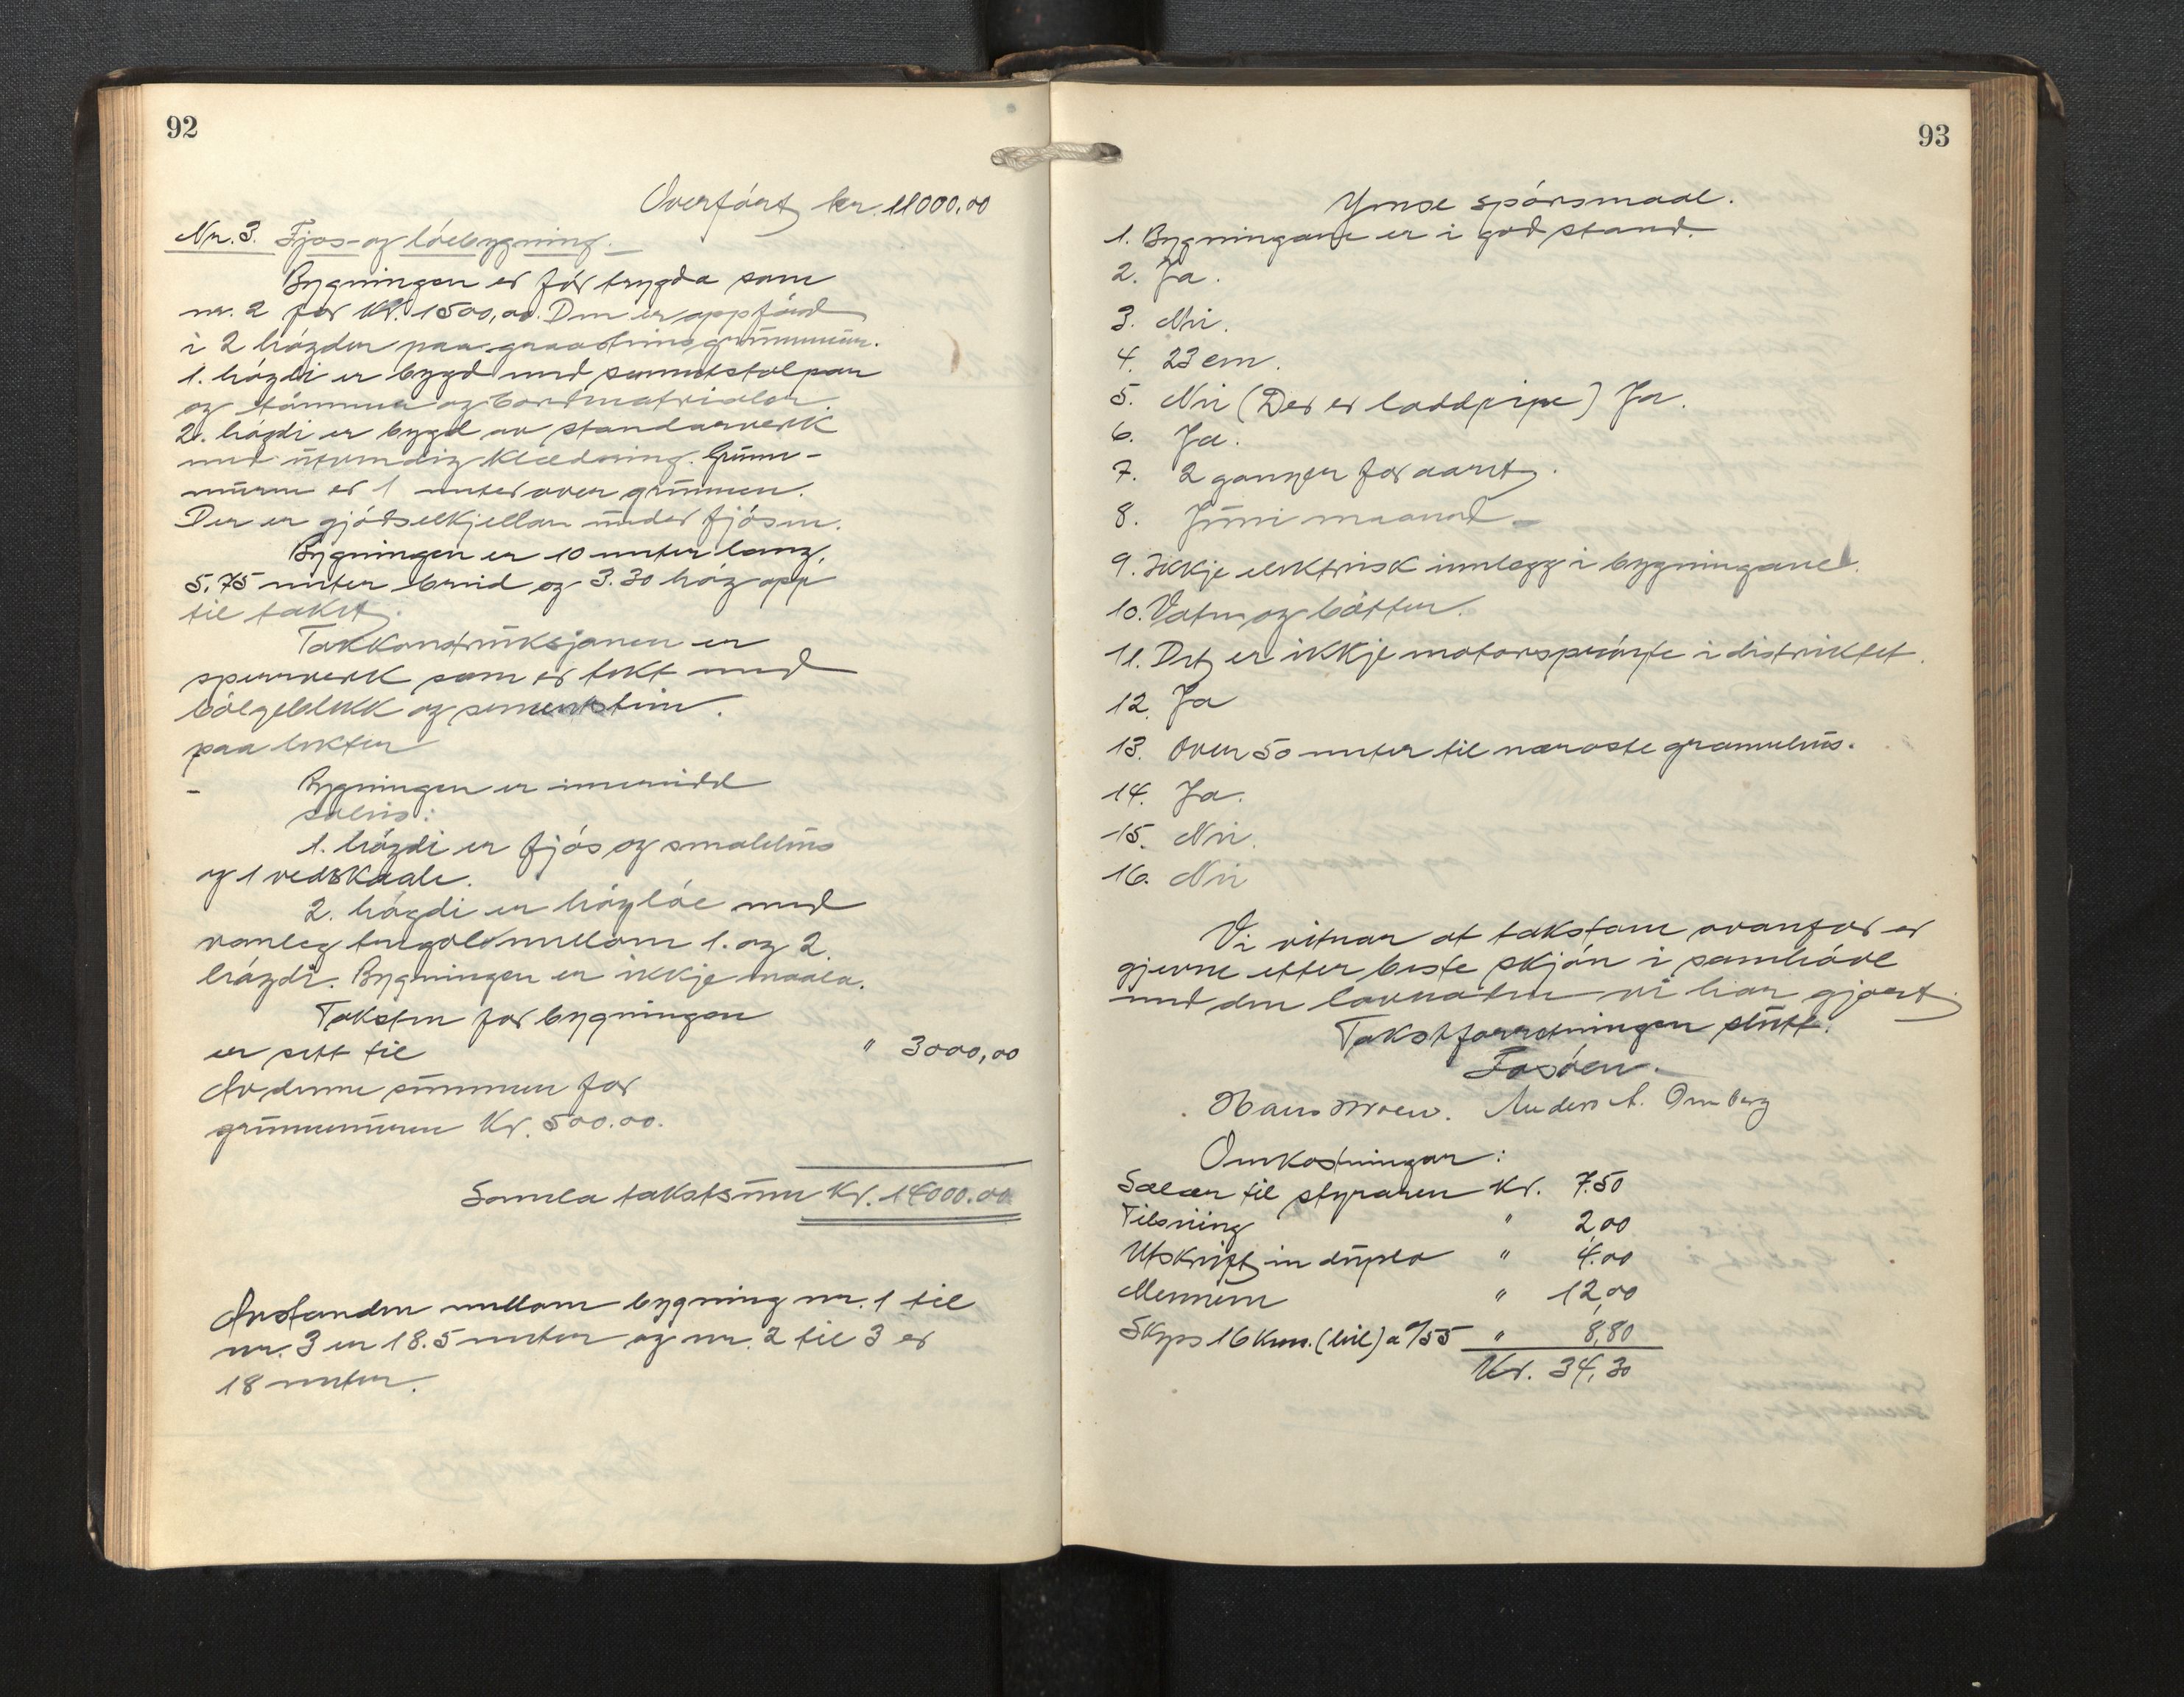 92
Overfört kr. 11000,00
Nr. 3. Fjos- og löebygning.
Bygningen er för trygda som
nr. 2 for Kr. 1500,00. Den er oppförd
i 2 högder paa graasteinsgrunnmur.
1. högdi er bygd med sementstolpar
og tömmer og bordmatrialer.
2. högdi er bygd av standarverk
med utvendig klædning. Grunn-
muren er 1 meter over grunnen.
Der er gjödselkjellar under fjösen.
Bygningen er 10 meter lang,
5,75 meter breid og 3.30 hög opp
til taket.
Takkonstruksjonen er
sperrverk som er tekt med
bölgeblekk og sementstein.
paa lekter
- Bygningen er innreidd
soleis:
1. högdi er fjös og smalehus
og 1 vedskaale.
2. högdi er höylöe med
vanleg tregolv mellom 1. og 2.
högdi. Bygningen er ikkje maala.
Taksten for bygningen
er sett til " 3000,00
Av denne summen for
grunnmuren Kr. 500.00.
Samla takstsum Kr. 14000.00
Avstanden mellom bygning nr. 1 til
nr. 3 er 18.5 meter og nr. 2 til 3 er
18 meter.
93
Ymse spörsmaal.
1. Bygningane er i god stand.
2. Ja.
3. Nei.
4. 23 cm.
5. Nei (Der er loddpipe) Ja.
6. Ja.
7. 2 ganger for aaret.
8. Juni maaned
9. Ikkje elektrisk innlegg i bygningane.
10. Vatn og bötter.
11. Det er ikkje motorspröite i distriktet.
12. Ja
13. Over 50 meter til næraste grannehus.
14. Ja.
15. Nei.
16. Nei
Vi vitnar at takstane ovanfor er
gjevne etter beste skjön i samhöve
med den lovnaden vi har gjort.
Takstforretningen slutt.
Fosöen.
Hans Moen. Anders A. Ornberg
Omkostningar:
Salær til styraren Kr. 7.50
Tilseiing " 2,00
Utskrift in duplo " 4.00
Mennene " 12,00
Skyss 16 km. (bil) a 0/55 " 8,80
Kr. 34,30